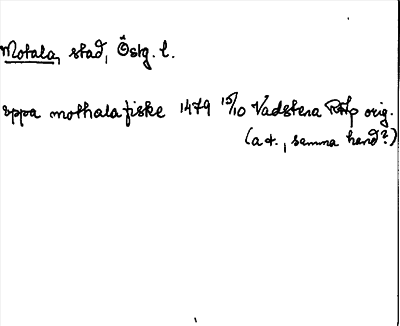 Motala, stad, Östg. l.
uppa mothala fiske 1479 15/10 Vadstena RAp orig.
(a t., samma hand?)